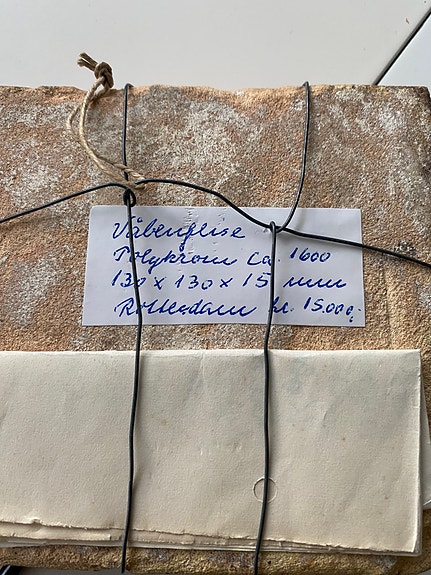 Våbenflise
Polykrom ca. 1600
130 x 130 x 15 mm
Rotterdam kr. 15.000,-